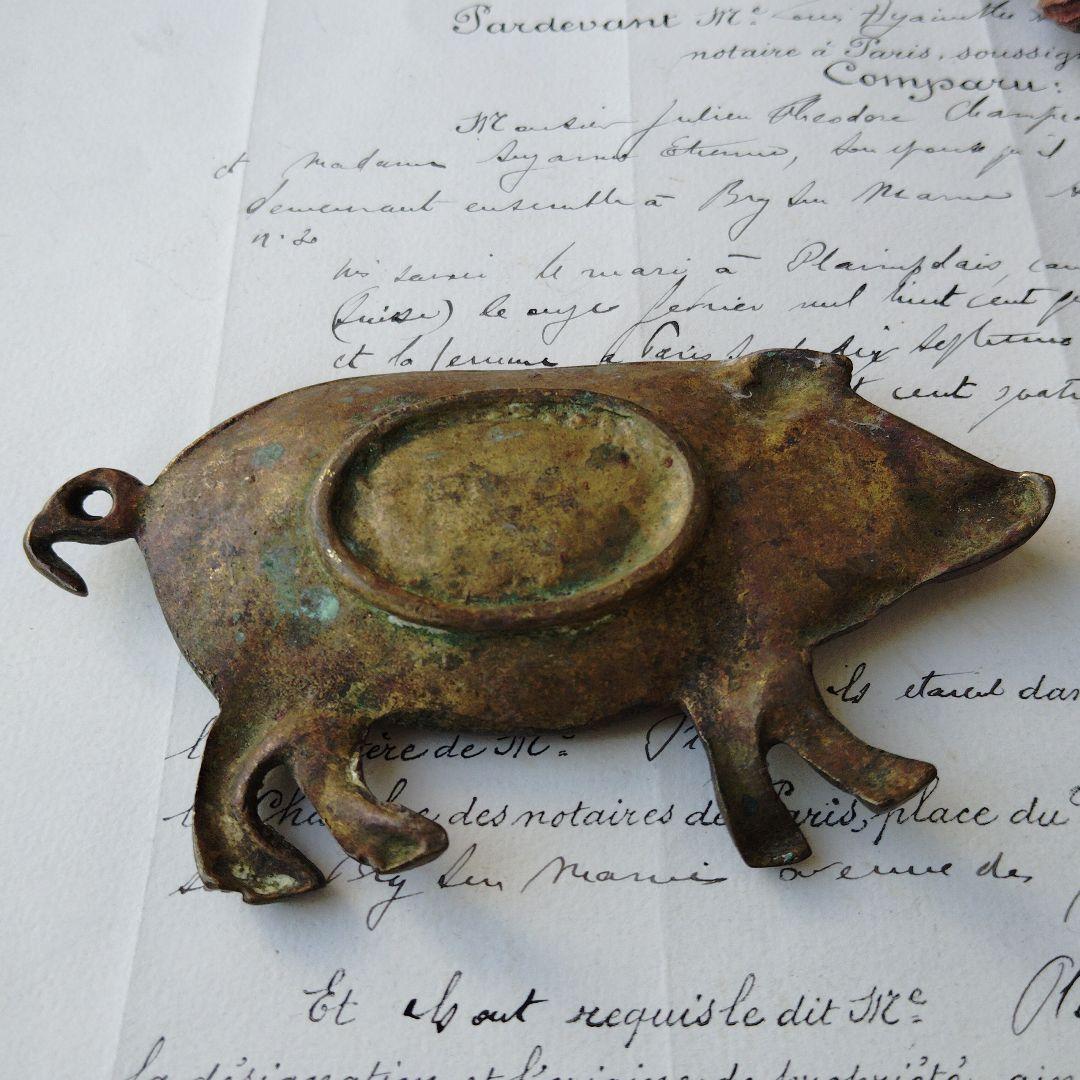 Pardevant Me Louis Hyacinthe
notaire à Paris, soussig
Comparu:
Monsieur Julien Théodore Champ
et madame Suzanne Etienne, son épouse qu'il
demeurant ensemble à Bry sur Marne
n. 20
le mari à
(Suisse) le onze février mil huit cent
et la femme à Paris le six septembre
t cent quat
ils étaient dan
ère de Me
Ch des notaires de Paris, place du
Bry sur Marne avenue des
Et ont requis le dit Me
la désignation et l'origine de propriété, ain